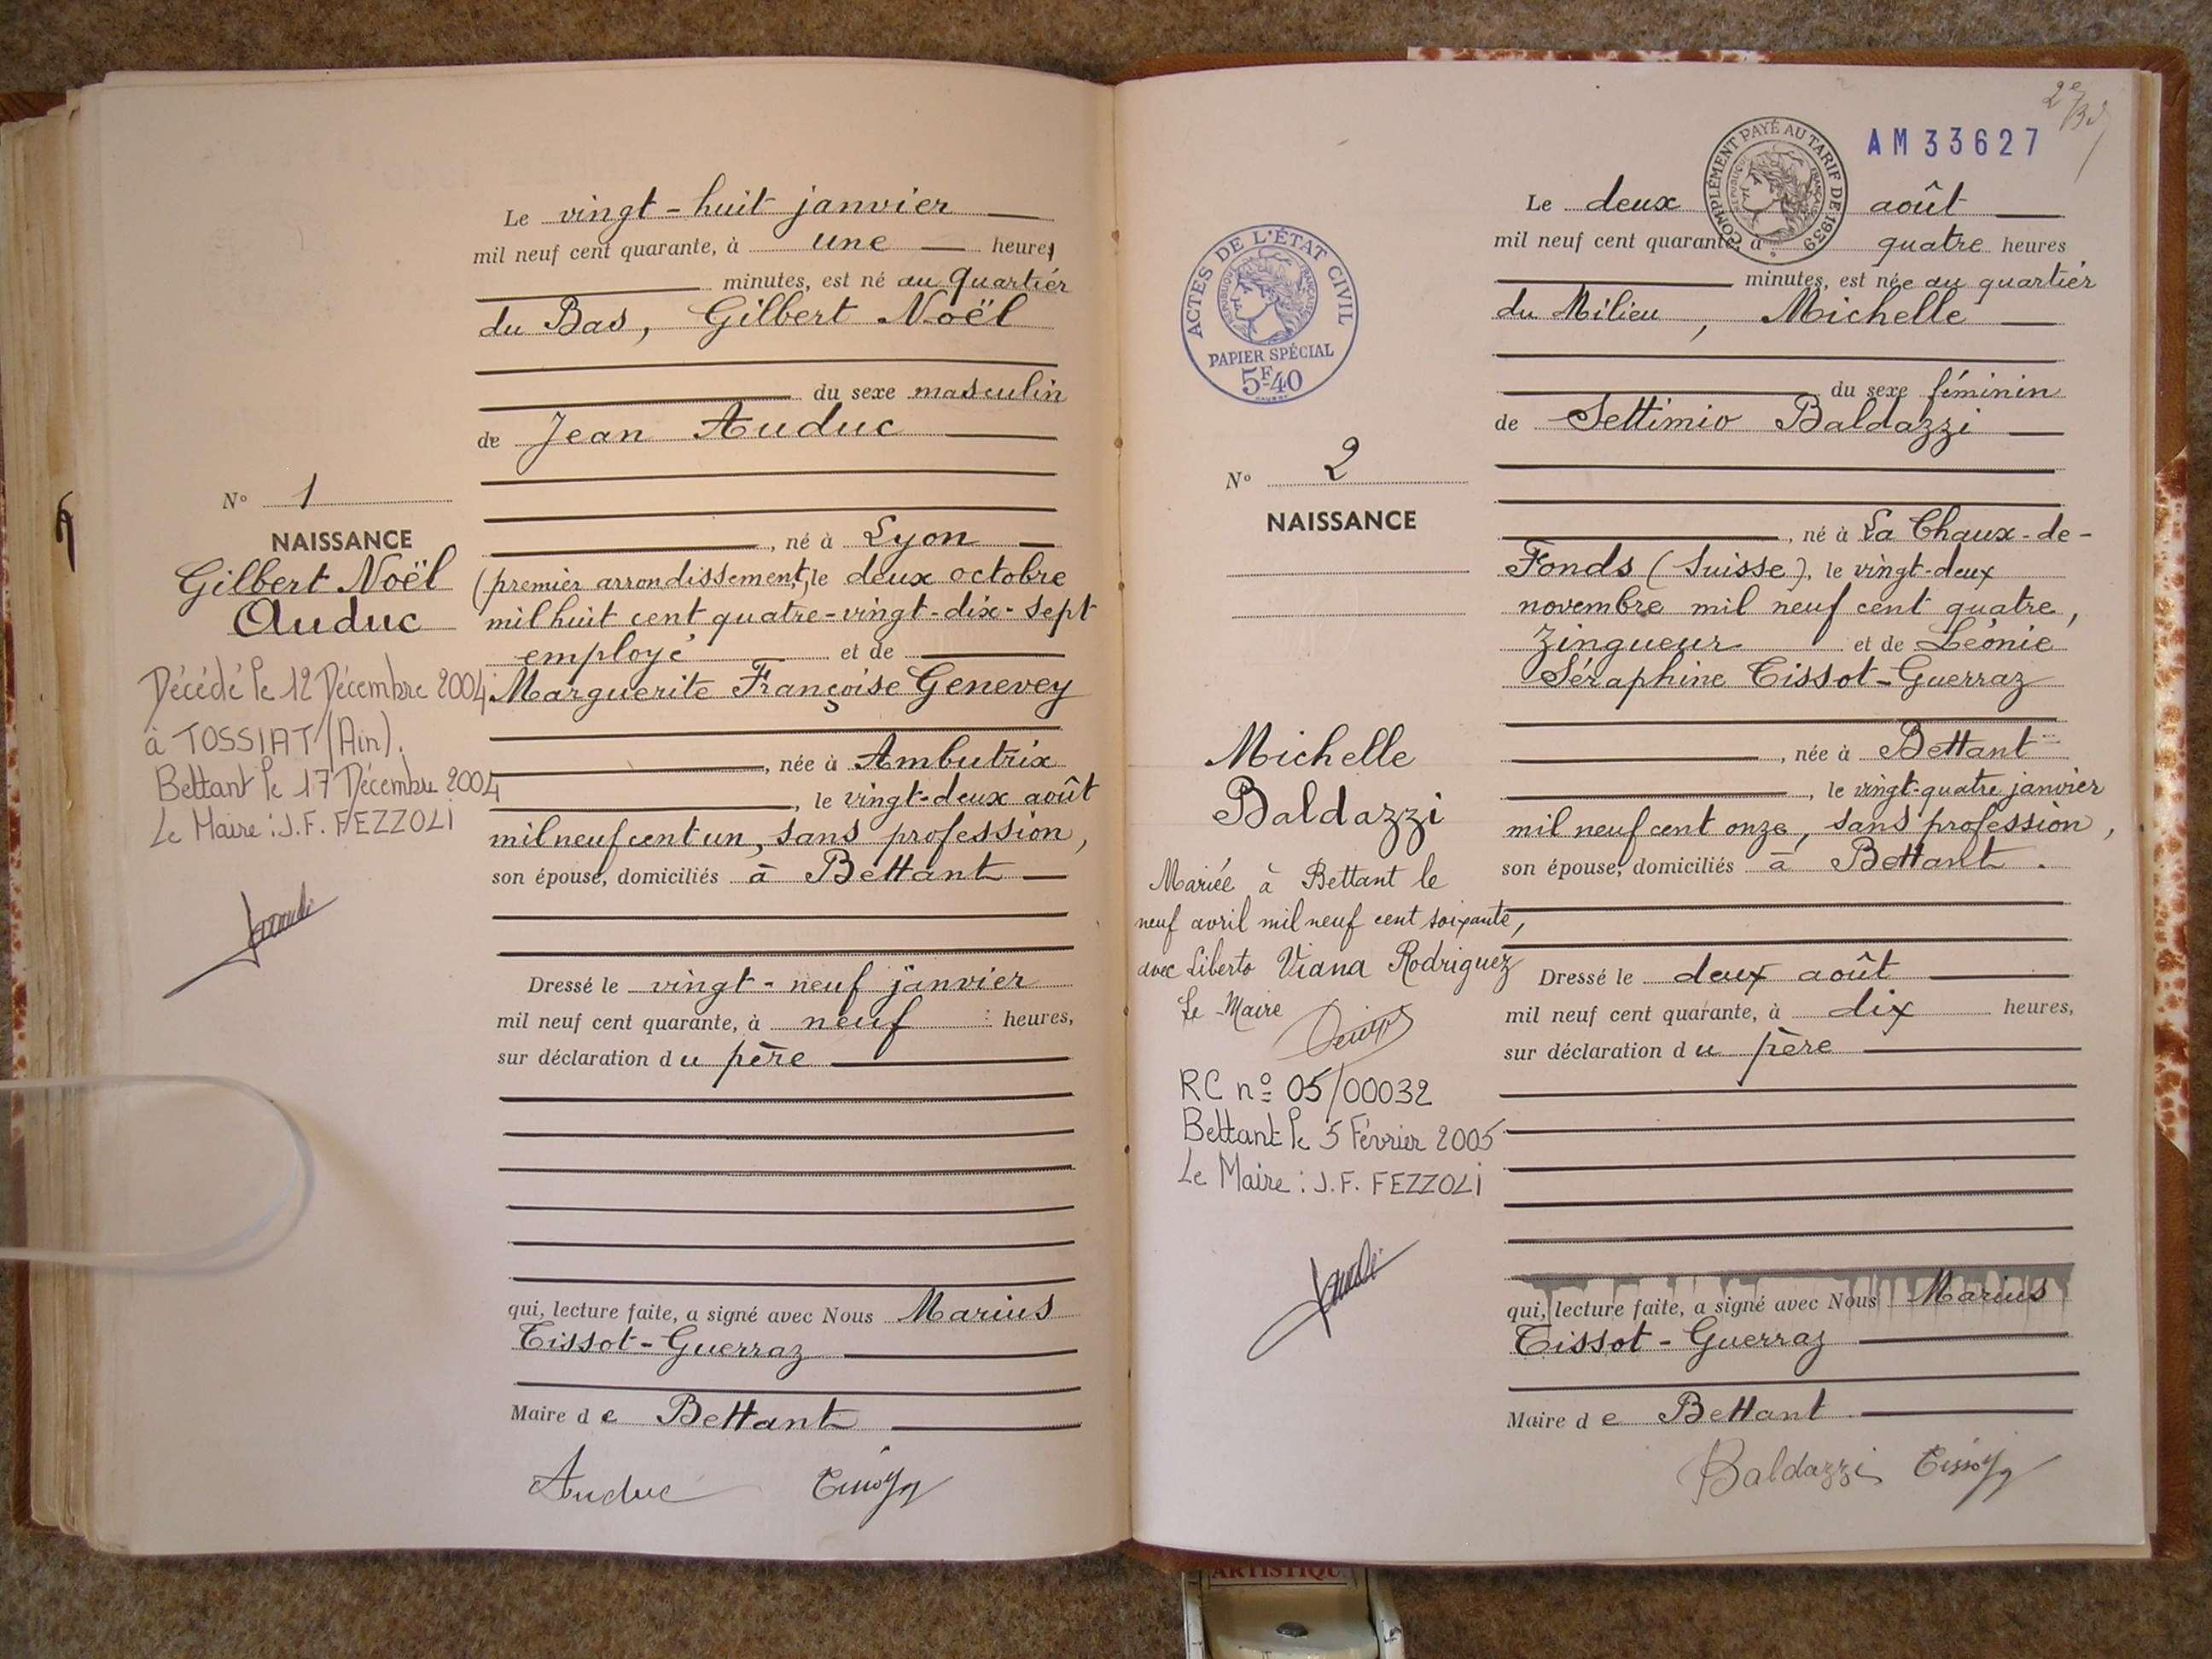 Le vingt-huit janvier
mil neuf cent quarante, à une heures
minutes, est né au quartier
du Bas, Gilbert Noël
du sexe masculin
de Jean Auduc
N° 1
NAISSANCE
Gilbert Noël
Auduc
Décédé le 12 Décembre 2004
à TOSSIAT (Ain).
Bettant le 17 Décembre 2004
Le Maire : J.F. FEZZOLI
, né à Lyon
(premier arrondissement), le deux octobre
mil huit cent quatre-vingt-dix-sept
employé et de
Marguerite Françoise Genevey
, née à Ambutrix
, le vingt-deux août
mil neuf cent un, sans profession,
son épouse, domiciliés à Bettant
Dressé le vingt-neuf janvier
mil neuf cent quarante, à neuf heures,
sur déclaration du père
qui, lecture faite, a signé avec Nous Marius
Tissot-Guerraz
Maire de Bettant
Auduc
AM33627
COMPLÉMENT PAYÉ AU TARIF DE 1939
RÉPUBLIQUE FRANÇAISE
Le deux août
mil neuf cent quarante, à quatre heures
minutes, est née au quartier
du Milieu, Michelle
du sexe féminin
de Settimio Baldazzi
ACTES DE L'ÉTAT CIVIL
RÉPUBLIQUE FRANÇAISE
PAPIER SPÉCIAL
5F40
N° 2
NAISSANCE
Michelle
Baldazzi
Mariée à Bettant le
neuf avril mil neuf cent soixante,
avec Liberto Viana Rodriguez
Le Maire
RC n° 05/00032
Bettant le 5 Février 2005
Le Maire : J.F. FEZZOLI
, né à La Chaux-de-
Fonds (Suisse), le vingt-deux
novembre mil neuf cent quatre,
zingueur et de Léonie
Séraphine Tissot-Guerraz
, née à Bettant
, le vingt-quatre janvier
mil neuf cent onze, sans profession,
son épouse, domiciliés à Bettant.
Dressé le deux août
mil neuf cent quarante, à dix heures,
sur déclaration du père
qui, lecture faite, a signé avec Nous Marius
Tissot-Guerraz
Maire de Bettant
Baldazzi
ARTISTIQU